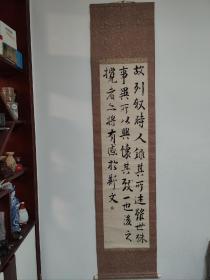 故列叙時人錄其所述雖世殊
事異所以興懷其致一也後之
攬者亦將有感於斯文